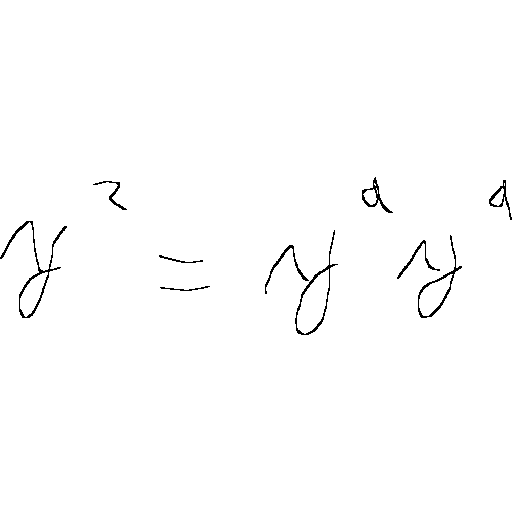 y^2 = y^a y^a